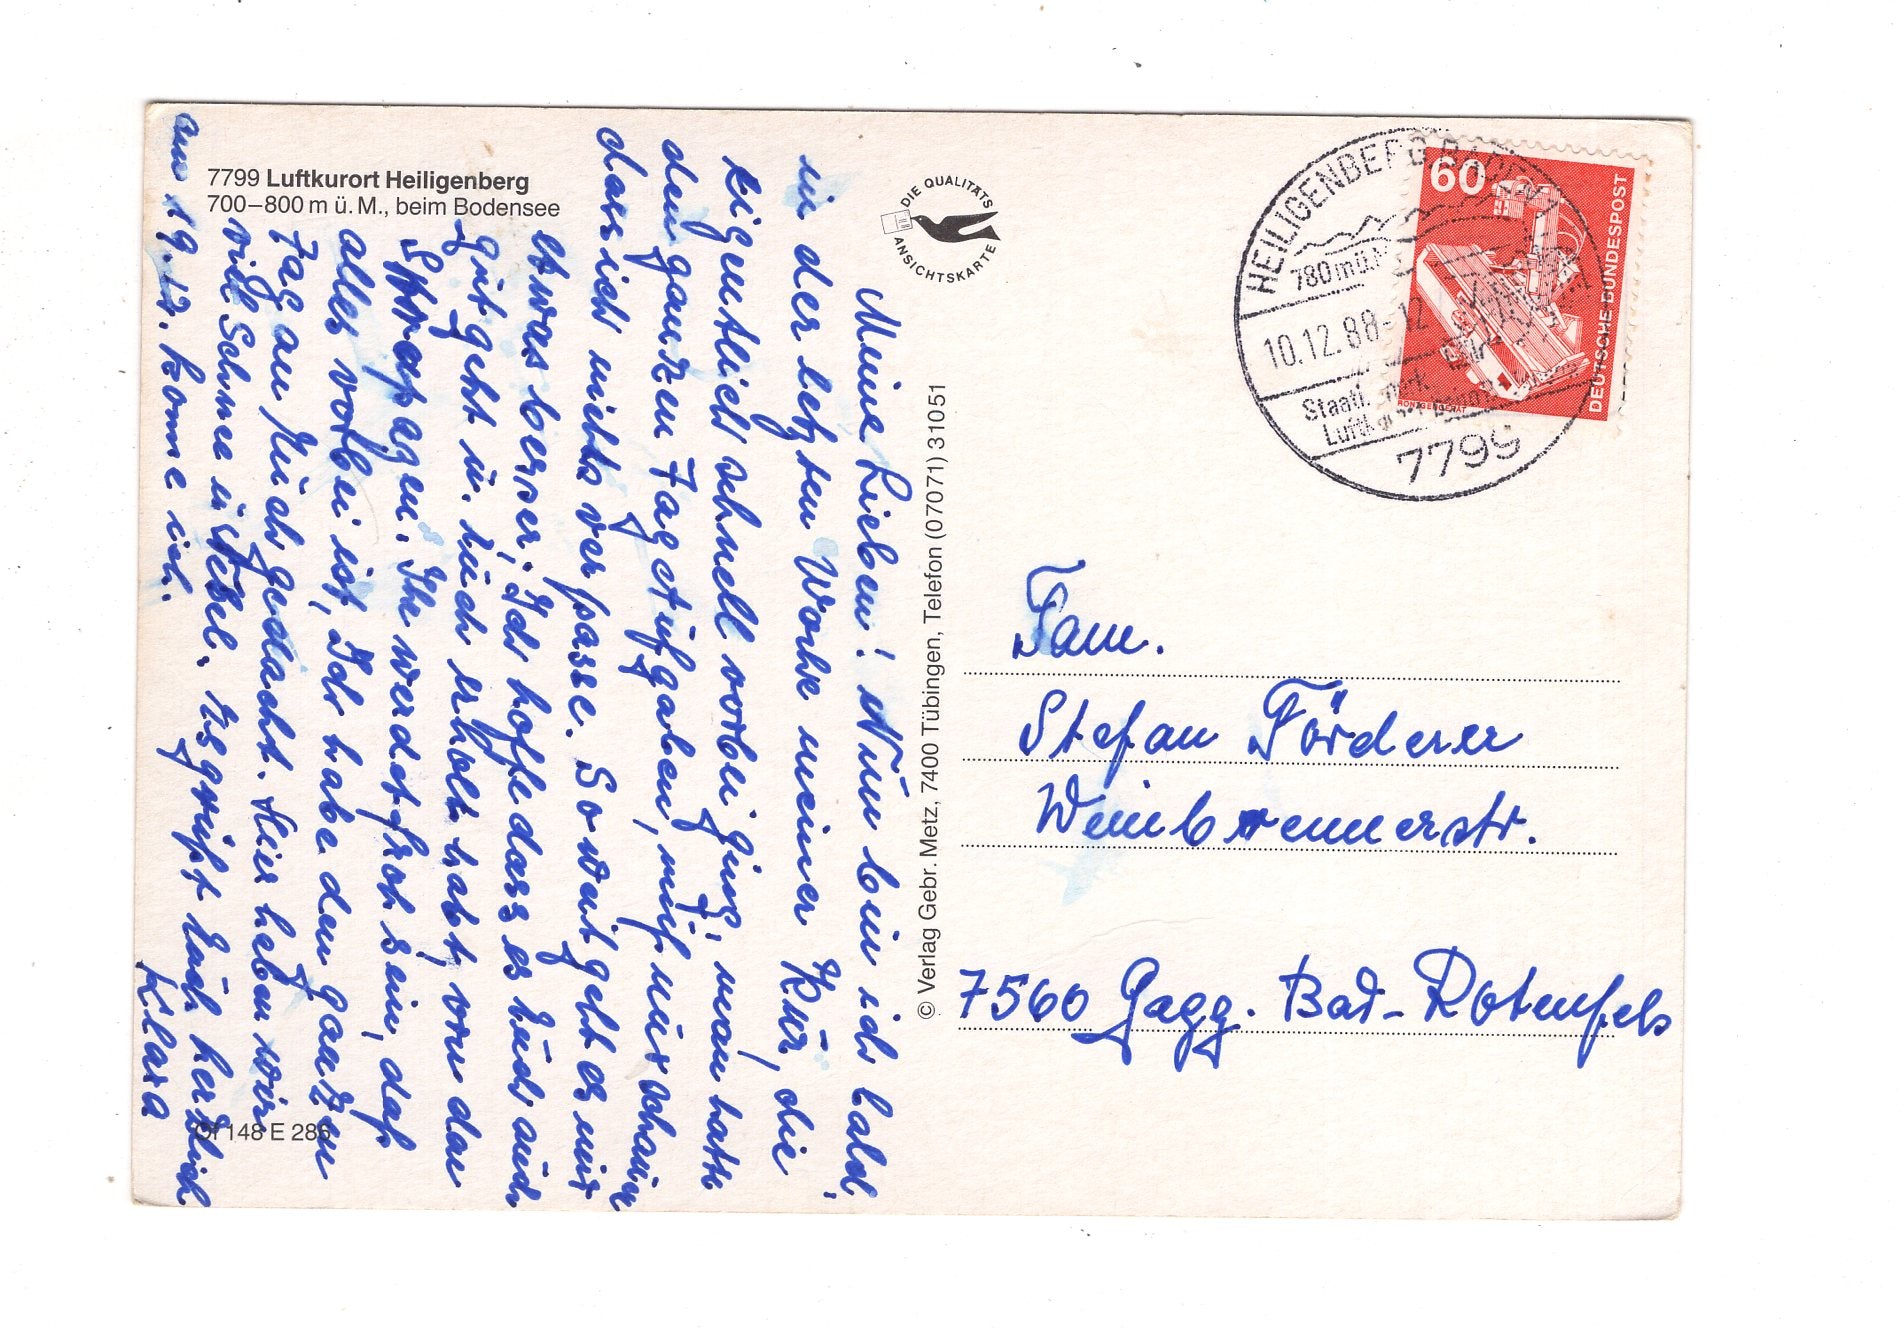 7799 Luftkurort Heiligenberg
700–800 m ü. M., beim Bodensee
Meine Lieben! Nun bin ich bald
in der letzten Woche meiner Kur, die
eigentlich schnell vorbei ging, man hatte
den ganzen Tag Aufgaben, muß nur schauen
dass ich nichts verpasse. Soweit geht es mir
etwas besser, Ich hoffe dass es Euch auch
gut geht u. Euch erholt habt, von den
Strapazen. Ihr werdet froh sein, daß
alles vorbei ist, Ich habe den ganzen
Tag an Euch gedacht. Hier haben wir
viel Schnee u Nebel. Es grüßt Euch herzlich
am 19.12. komme ich. Klara
148 E 285
DIE QUALITÄTS
ANSICHTSKARTE
© Verlag Gebr. Metz, 7400 Tübingen, Telefon (07071) 31051
HEILIGENBERG, BADEN
780 m ü. M
10.12.88-12
Staatl. anerk.
Luftkurort
7799
60
DEUTSCHE BUNDESPOST
RÖNTGENGERÄT
Fam.
Stefan Förderer
Weinbrennerstr.
7560 Gagg. Bad-Rotenfels